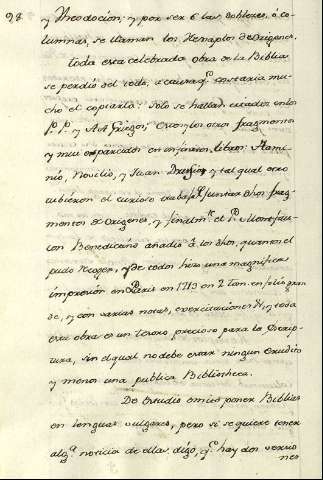 98
y Theodocion; y por ser 6 las dobleces, ó co-
lumnas, se llaman los Hexaplos de Origenes.
Toda esta celebrada obra de la Biblia
se perdió del todo, a causa q.e costaria mu-
cho el copiarla: Solo se hallan citados en los
P.P. y A.A. Griegos, y otros fragmentos
y mui esparcidos en infinitos libros: Flami-
nio, Novilio, y Juan Drusio, y tal qual otro
tubieron el curioso trabajo juntar dhos frag-
mentos de Origenes, y finalm.te el P. Montfau-
con Benedictino añadió á los dhos, quantos el
pudo recoger, y de todos hizo una magnifica
impresion en Paris en 1713 en 2 Tom. en folio gran-
de, y con varias notas, exercitaciones &, y toda
esta obra es un tesoro precioso para la Escrip-
tura, sin el qual no debe estar ningun erudito
y menos una publica Bibliotheca.
De estudio omito poner Biblias
en lenguas vulgares, pero si se quiere tener
alg.a noticia de ellas, digo, q.e hay dos versio
nes